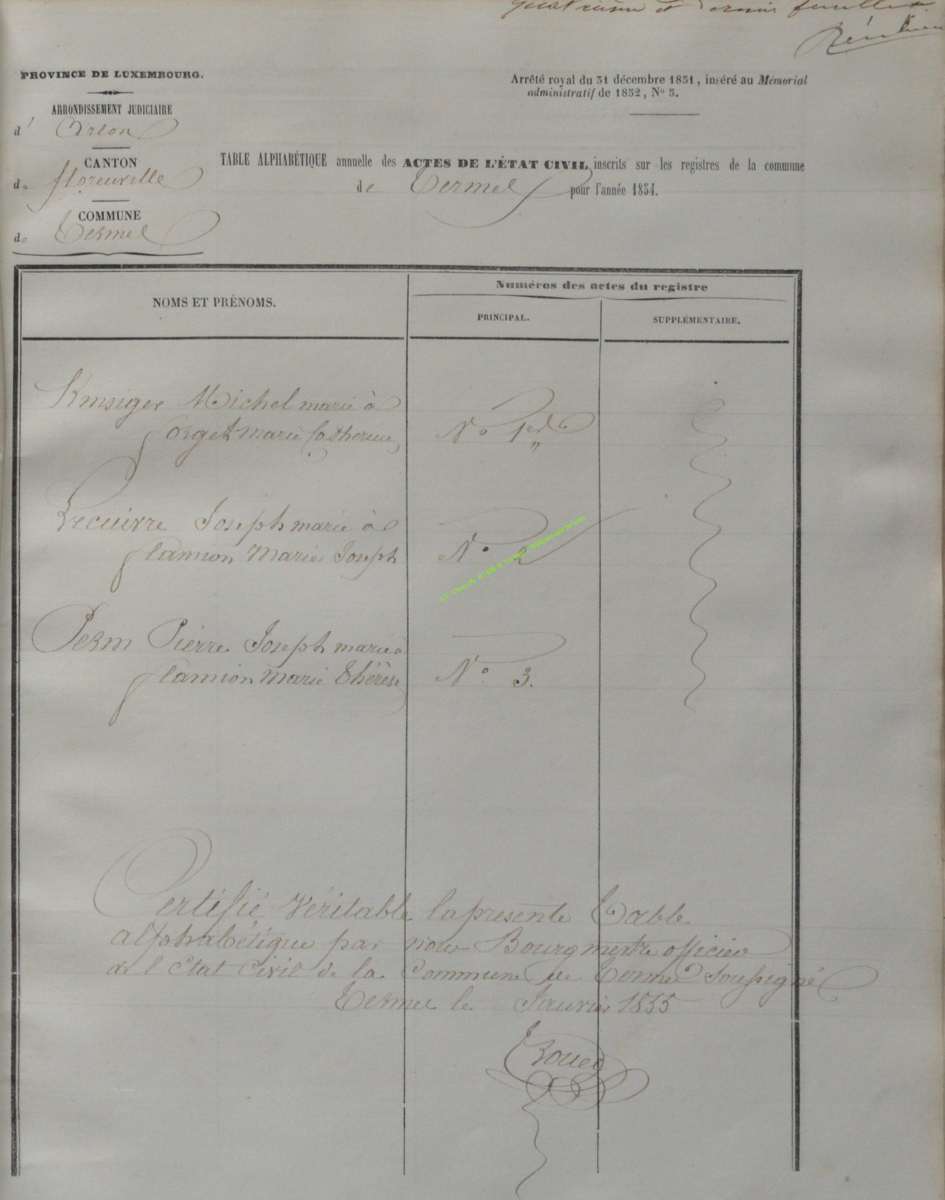 quatrième et dernier feuillet
PROVINCE DE LUXEMBOURG.
Arrêté royal du 31 décembre 1831, inséré au Mémorial
administratif de 1832, No 3.
ARRONDISSEMENT JUDICIAIRE
d' Arlon
CANTON
de florenville
COMMUNE
de Termes
TABLE ALPHABÉTIQUE annuelle des ACTES DE L'ÉTAT CIVIL inscrits sur les registres de la commune
de Termes pour l'année 1854.
NOMS ET PRÉNOMS.
Numéros des actes du registre
PRINCIPAL.
SUPPLÉMENTAIRE.
Kinsiger Michel marié à
forget marie Catherine
No 1er
Lecuivre Joseph marié à
flamion Marie Joseph
No 2
Perin Pierre Joseph marié à
flamion Marie Thérèse
No 3.
Certifié Véritable la présente Table
alphabétique par nous Bourgmestre officier
de l'Etat Civil de la Commune de Termes soussigné
Termes le Janvier 1855